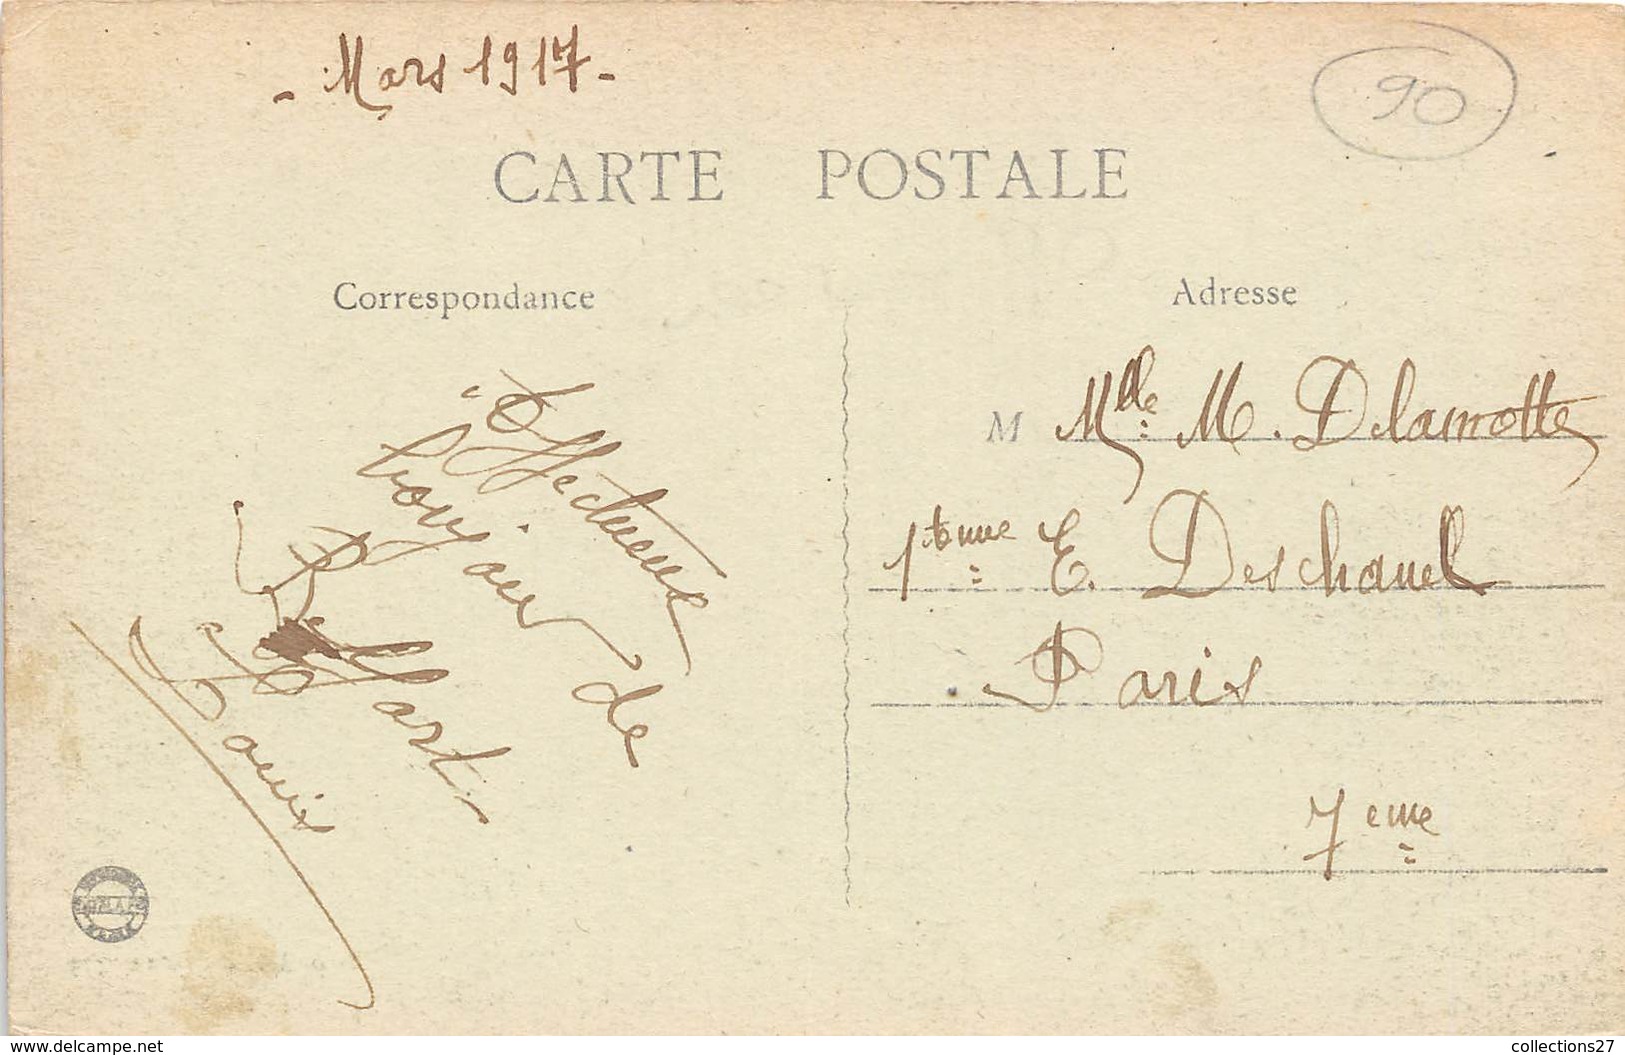 - Mars 1917 -
90
CARTE POSTALE
Correspondance
Adresse
Affectueux
bonjour de
Belfort.
Louis
M Mlle M. Delamotte
1 bis E. Deschanel
Paris
7 eme
www.delcampe.net
collections27